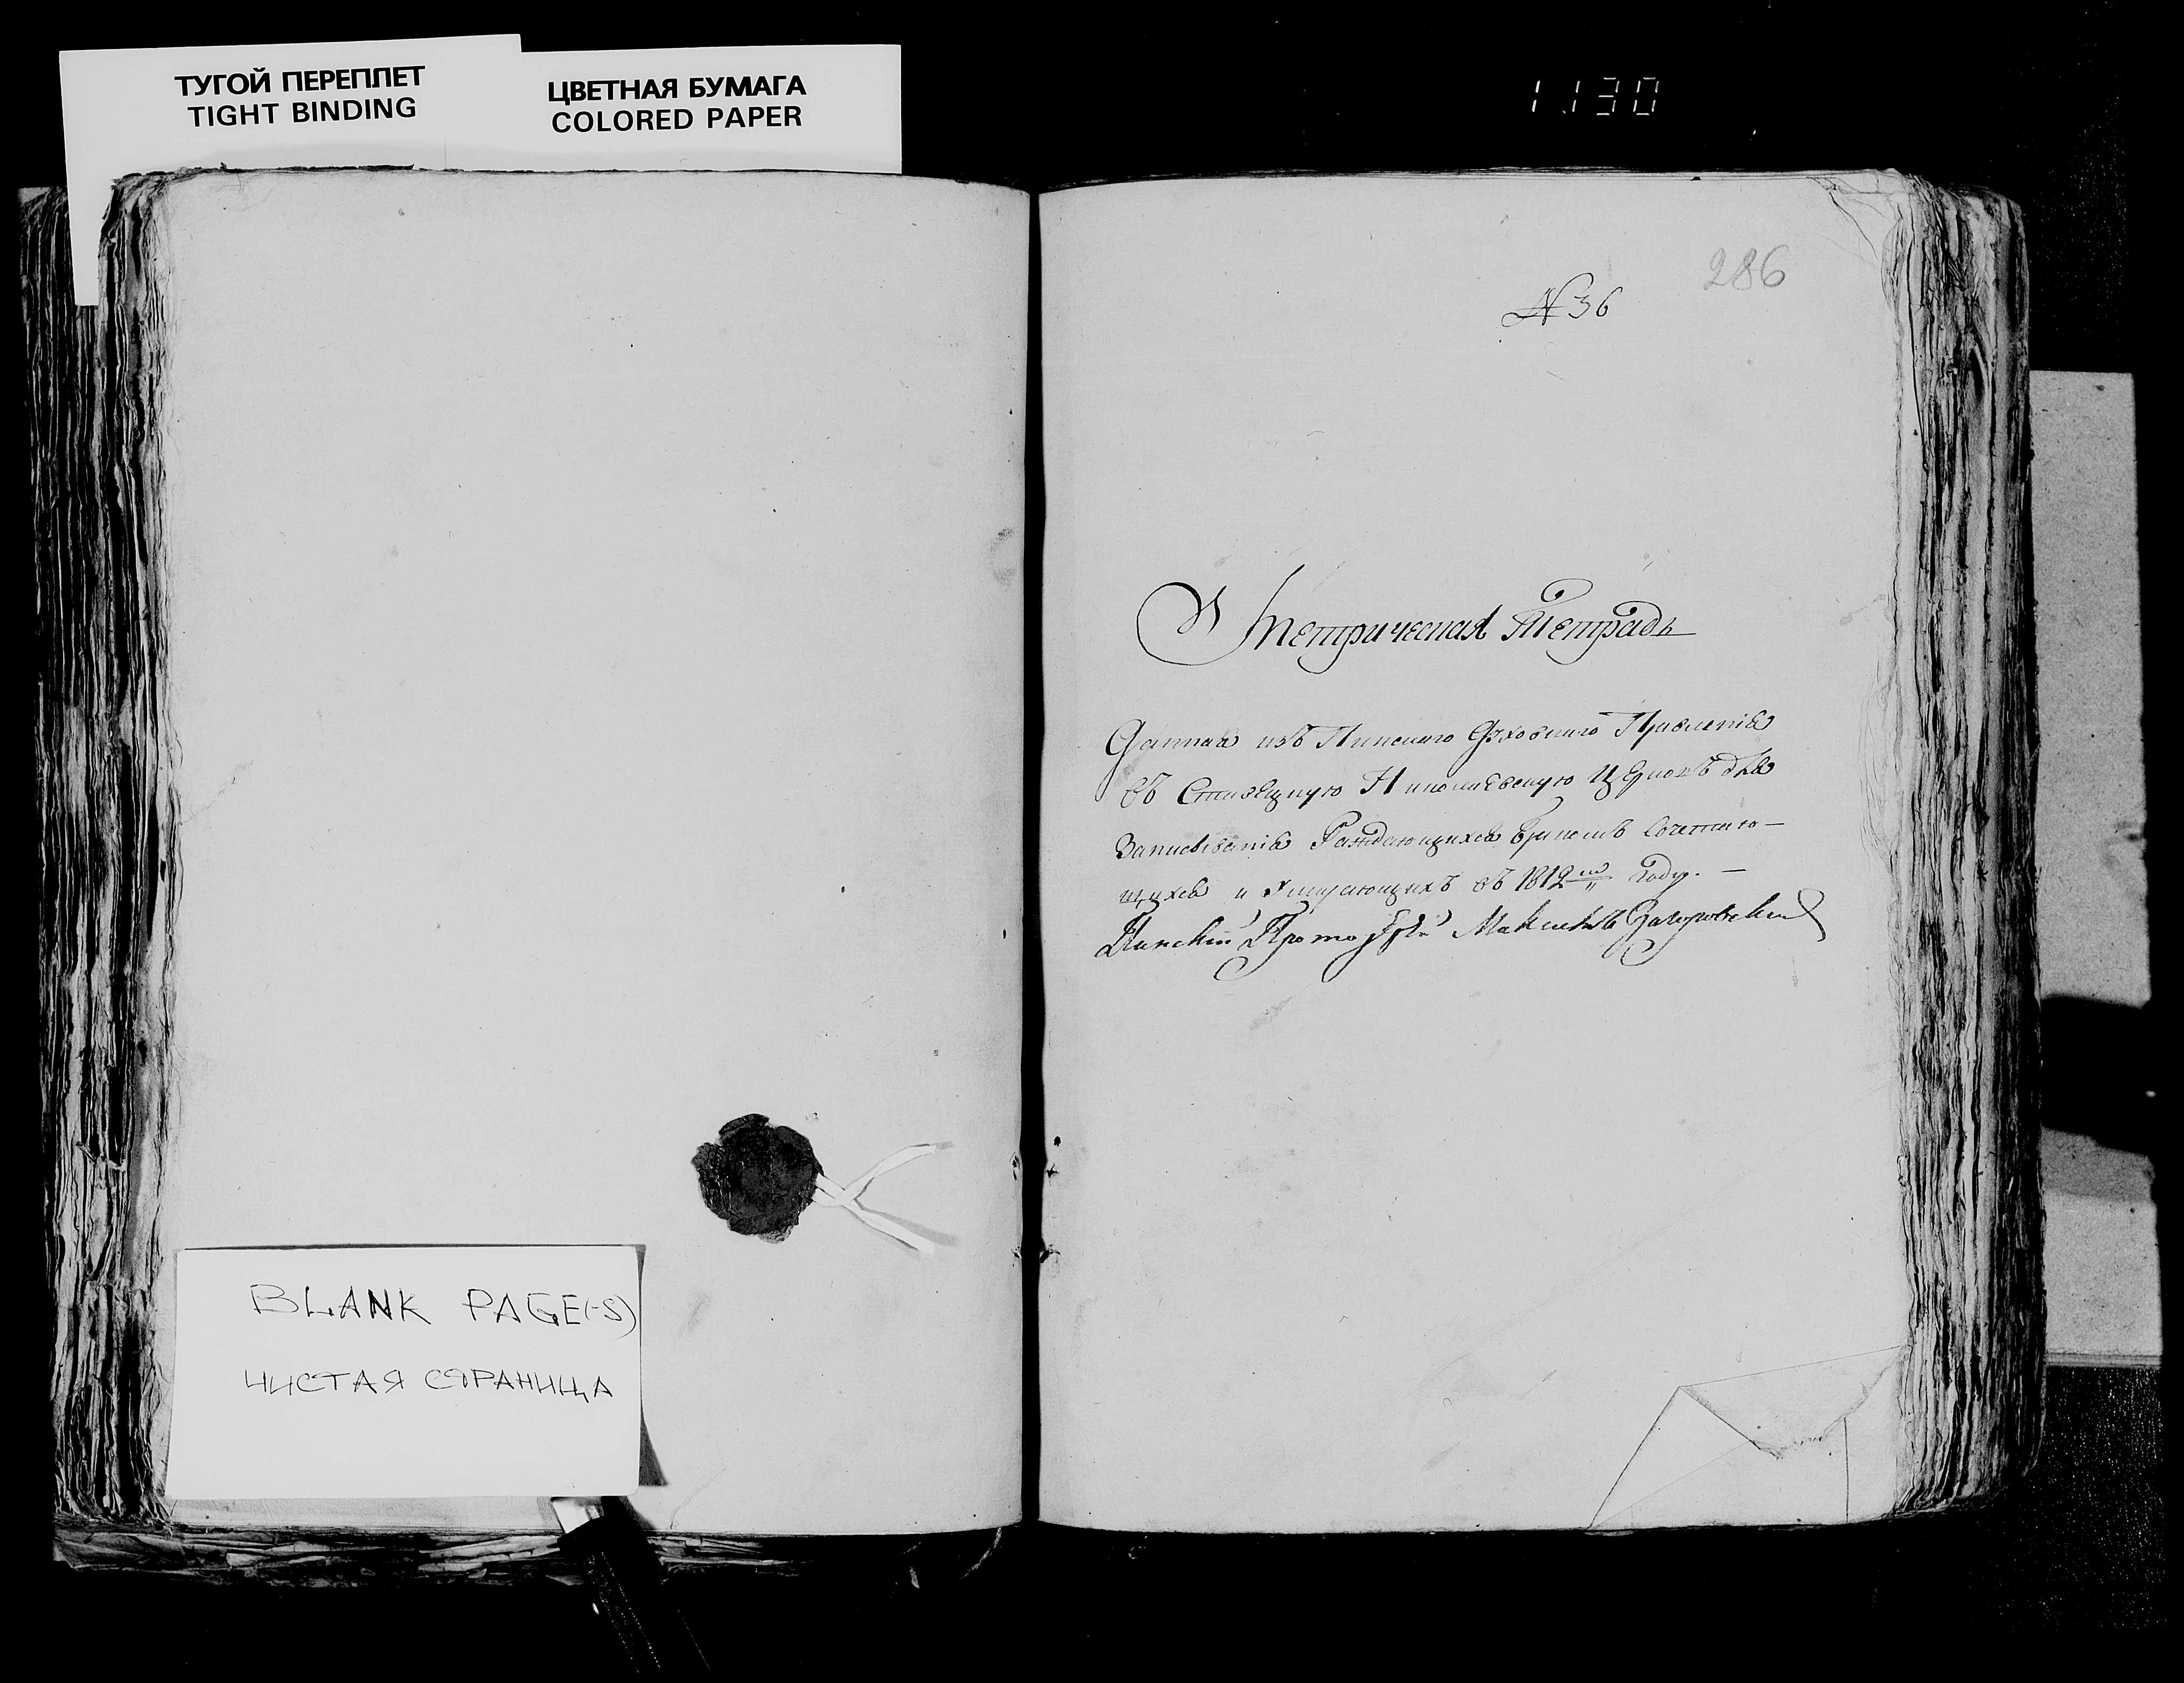 ТУГОЙ ПЕРЕПЛЕТ
TIGHT BINDING
ЦВЕТНАЯ БУМАГА
COLORED PAPER
1130
286
№ 36
Метрическая Тетрадь
Данная изъ Пинскаго Духовнаго Правленія
въ Ставецкую Николаевскую Церковь для
Записыванія Раждающихся бракомъ Сочетаю-
щихся и Умирающихъ въ 1812 году. -
Пинскій Протоіерей Максимъ
BLANK PAGE(-S)
ЧИСТАЯ СТРАНИЦА